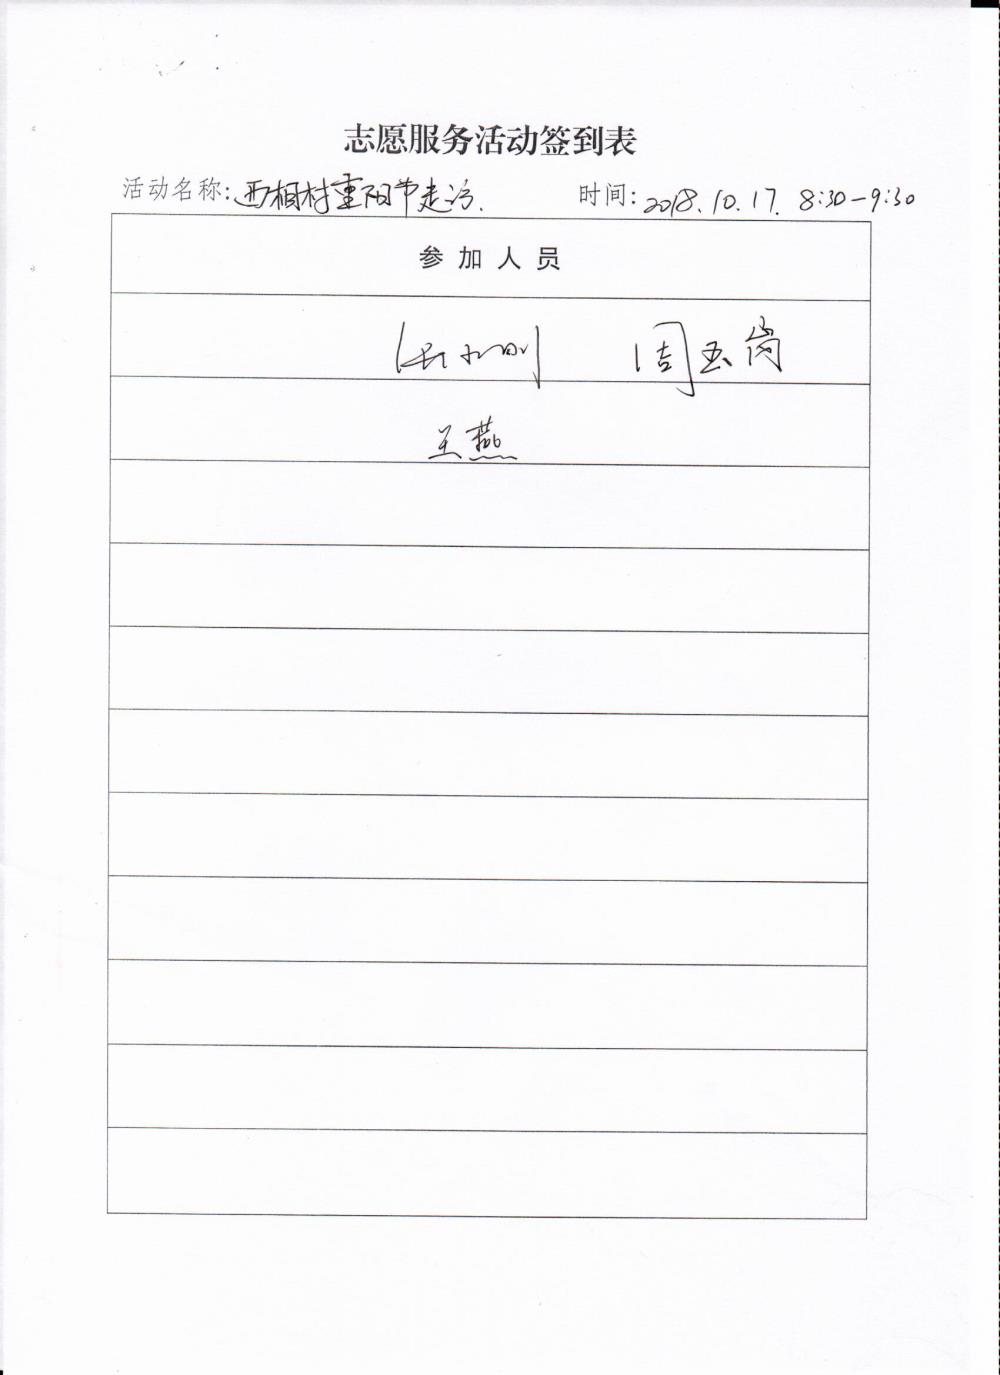 志愿服务活动签到表
活动名称:西相村重阳节走访. 时间:2018.10.17. 8:30-9:30
参加人员
周玉岗
王燕